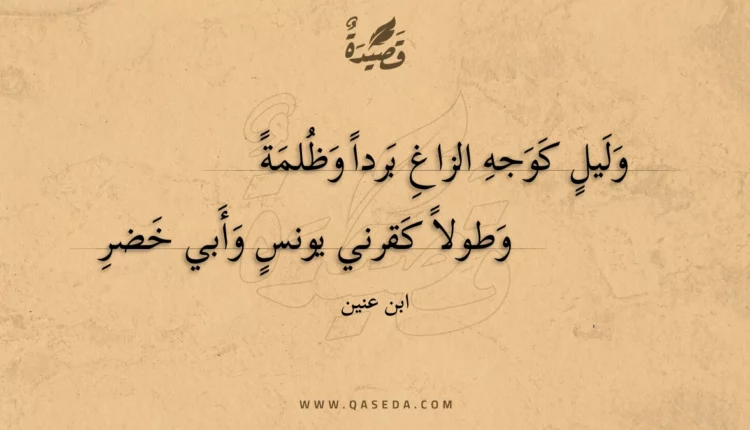 قَصِيدَةٌ
وَلَيلٍ كَوَجهِ الزاغِ بَرداً وَظُلمَةً
وَطولاً كَقرني يونسٍ وَأَبي خَضرِ
ابن عنين
WWW.QASEDA.COM